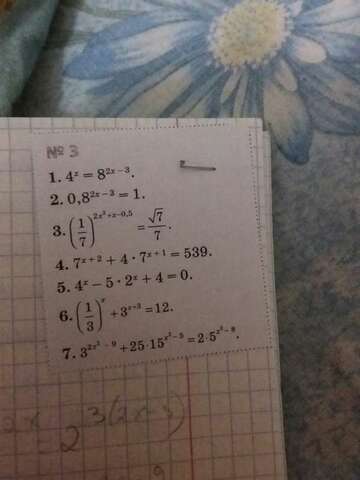 № 3
1. 4^x = 8^{2x−3}.
2. 0,8^{2x−3} = 1.
3. (1/7)^{2x²+x−0,5} = √7/7.
4. 7^{x+2} + 4 · 7^{x+1} = 539.
5. 4^x − 5 · 2^x + 4 = 0.
6. (1/3)^x + 3^{x+3} = 12.
7. 3^{2x²−9} + 25·15^{x²−5} = 2·5^{x²−8}.
2^{3(2x−3)}